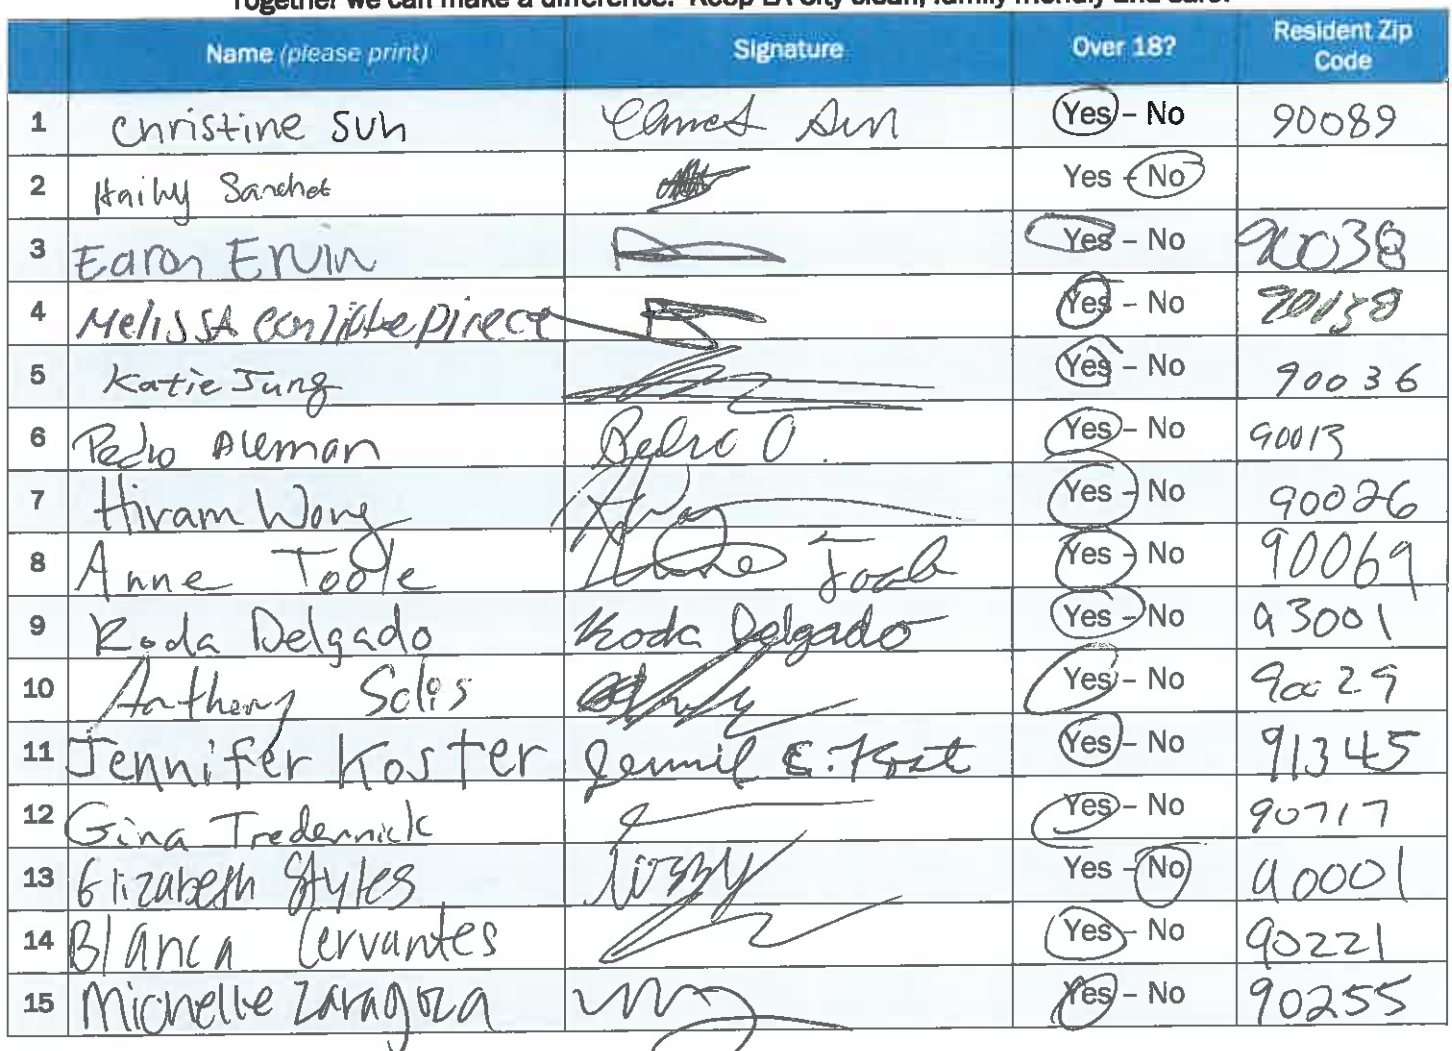 Together we can make a difference. Keep LA City clean, family friendly and safe!
Name (please print) Signature Over 18? Resident Zip Code
1 Christine Suh Yes - No 90089
2 Yes - No
3 Earon Ervin Yes - No 90038
4 Melissa Yes - No
5 Katie Jung Yes - No 90036
6 Pedro Aleman Pedro Yes - No 90013
7 Hiram Wong Yes - No 90026
8 Anne Toole Anne Toole Yes - No 90069
9 Koda Delgado Koda Delgado Yes - No 93001
10 Anthony Solis Yes - No 90029
11 Jennifer Koster Yes - No 91345
12 Gina Tredennick Yes - No 90717
13 Elizabeth Styles Lizzy Yes - No 90001
14 Blanca Cervantes Yes - No 90221
15 Michelle Zaragoza Yes - No 90255